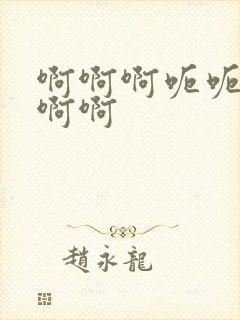 啊啊啊呃呃
啊啊
趙永龍